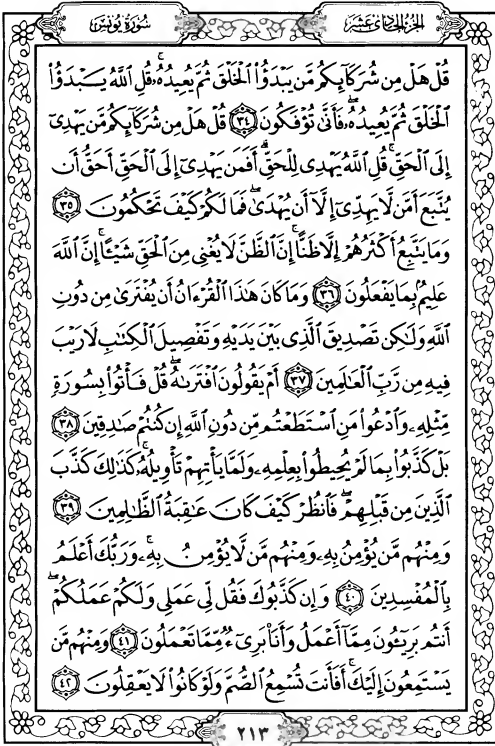 سُورَةُ يُونُسَ الجُزْءُ الحَادِي عَشَرَ
قُلْ هَلْ مِن شُرَكَآئِكُم مَّن يَبْدَؤُا۟ ٱلْخَلْقَ ثُمَّ يُعِيدُهُۥ ۚ قُلِ ٱللَّهُ يَبْدَؤُا۟
ٱلْخَلْقَ ثُمَّ يُعِيدُهُۥ ۖ فَأَنَّىٰ تُؤْفَكُونَ ٣٤ قُلْ هَلْ مِن شُرَكَآئِكُم مَّن يَهْدِىٓ
إِلَى ٱلْحَقِّ ۚ قُلِ ٱللَّهُ يَهْدِى لِلْحَقِّ ۗ أَفَمَن يَهْدِىٓ إِلَى ٱلْحَقِّ أَحَقُّ أَن
يُتَّبَعَ أَمَّن لَّا يَهِدِّىٓ إِلَّآ أَن يُهْدَىٰ ۖ فَمَا لَكُمْ كَيْفَ تَحْكُمُونَ ٣٥
وَمَا يَتَّبِعُ أَكْثَرُهُمْ إِلَّا ظَنًّا ۚ إِنَّ ٱلظَّنَّ لَا يُغْنِى مِنَ ٱلْحَقِّ شَيْـًٔا ۚ إِنَّ ٱللَّهَ
عَلِيمٌۢ بِمَا يَفْعَلُونَ ٣٦ وَمَا كَانَ هَـٰذَا ٱلْقُرْءَانُ أَن يُفْتَرَىٰ مِن دُونِ
ٱللَّهِ وَلَـٰكِن تَصْدِيقَ ٱلَّذِى بَيْنَ يَدَيْهِ وَتَفْصِيلَ ٱلْكِتَـٰبِ لَا رَيْبَ
فِيهِ مِن رَّبِّ ٱلْعَـٰلَمِينَ ٣٧ أَمْ يَقُولُونَ ٱفْتَرَىٰهُ ۖ قُلْ فَأْتُوا۟ بِسُورَةٍ
مِّثْلِهِۦ وَٱدْعُوا۟ مَنِ ٱسْتَطَعْتُم مِّن دُونِ ٱللَّهِ إِن كُنتُمْ صَـٰدِقِينَ ٣٨
بَلْ كَذَّبُوا۟ بِمَا لَمْ يُحِيطُوا۟ بِعِلْمِهِۦ وَلَمَّا يَأْتِهِمْ تَأْوِيلُهُۥ ۚ كَذَٰلِكَ كَذَّبَ
ٱلَّذِينَ مِن قَبْلِهِمْ ۖ فَٱنظُرْ كَيْفَ كَانَ عَـٰقِبَةُ ٱلظَّـٰلِمِينَ ٣٩
وَمِنْهُم مَّن يُؤْمِنُ بِهِۦ وَمِنْهُم مَّن لَّا يُؤْمِنُ بِهِۦ ۚ وَرَبُّكَ أَعْلَمُ
بِٱلْمُفْسِدِينَ ٤٠ وَإِن كَذَّبُوكَ فَقُل لِّى عَمَلِى وَلَكُمْ عَمَلُكُمْ ۖ
أَنتُم بَرِيٓـُٔونَ مِمَّآ أَعْمَلُ وَأَنَا۠ بَرِىٓءٌ مِّمَّا تَعْمَلُونَ ٤١ وَمِنْهُم مَّن
يَسْتَمِعُونَ إِلَيْكَ ۚ أَفَأَنتَ تُسْمِعُ ٱلصُّمَّ وَلَوْ كَانُوا۟ لَا يَعْقِلُونَ ٤٢
٢١٣